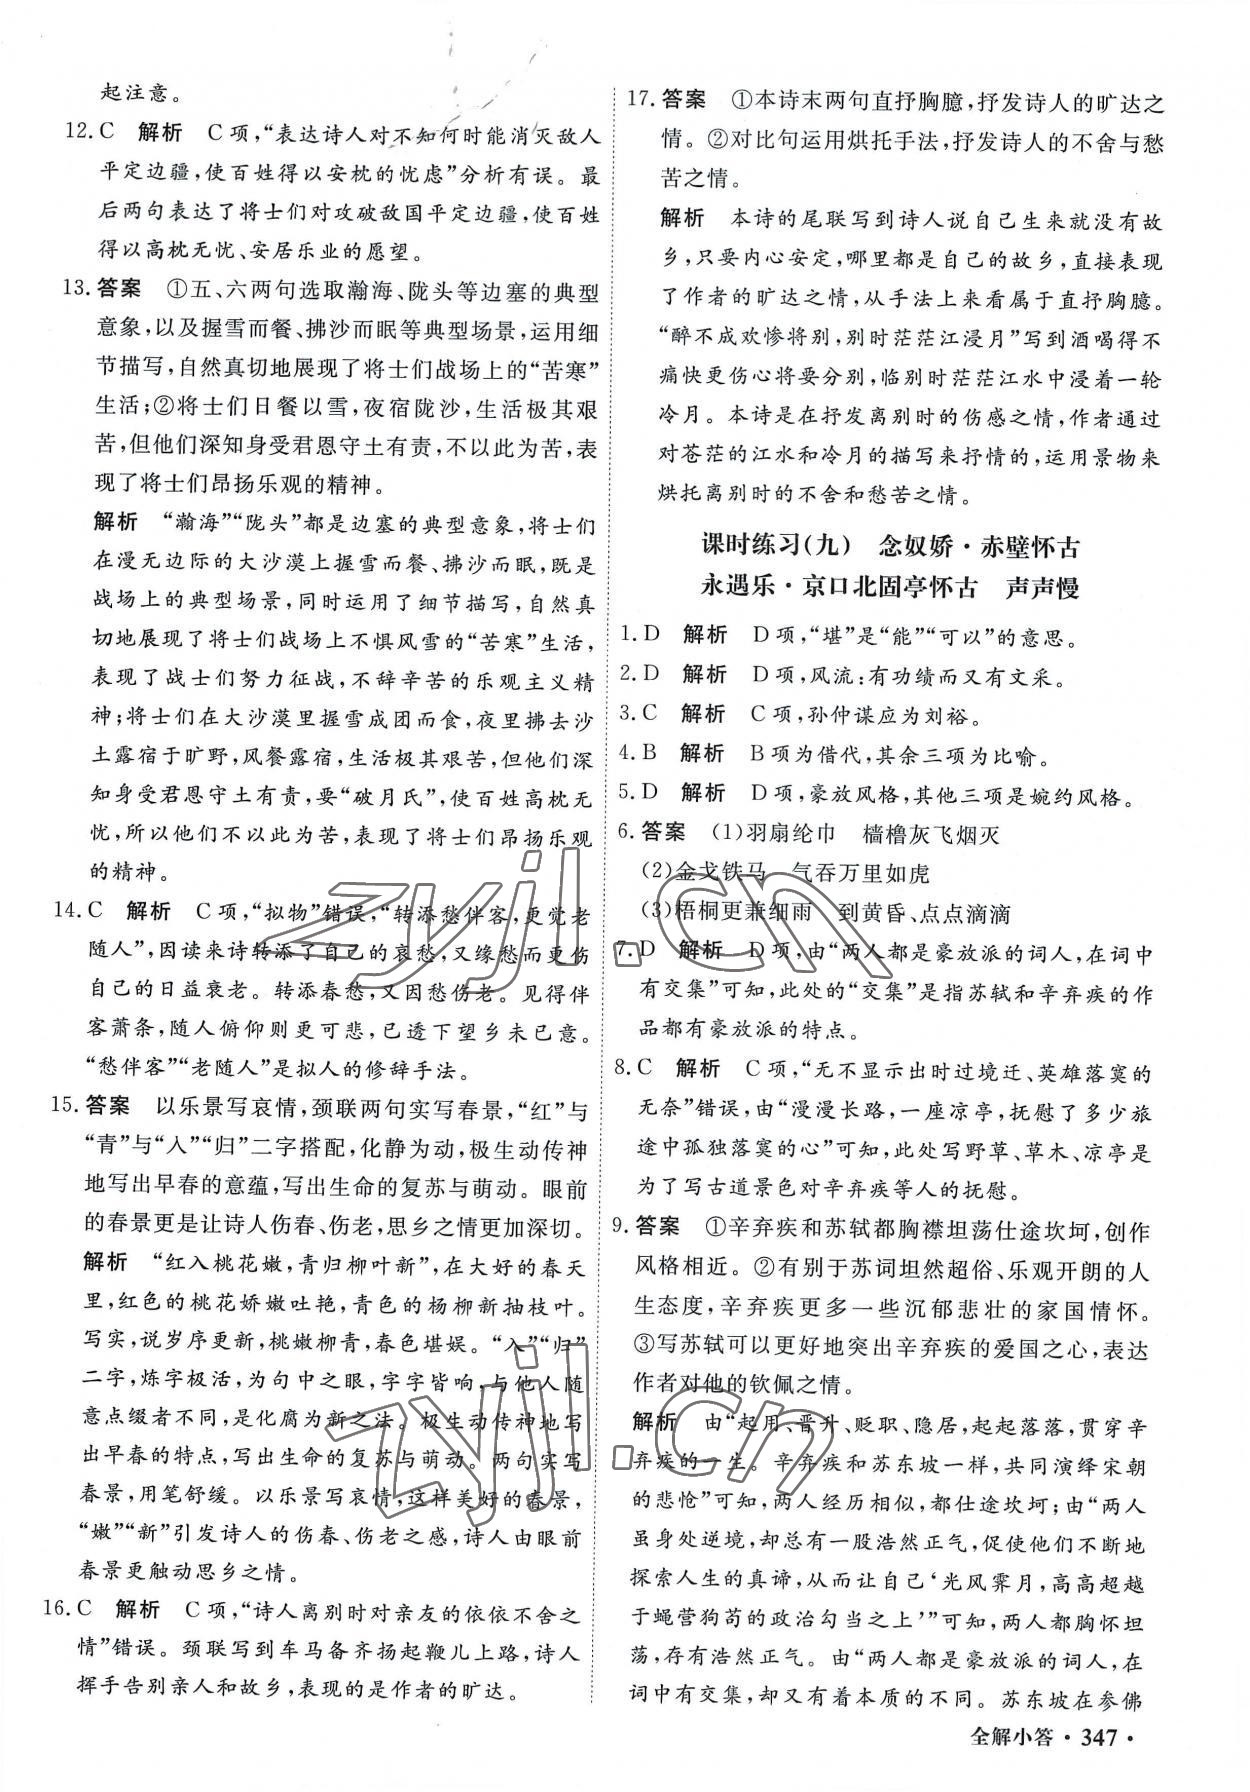 起注意。
12. C　解析　C 项，“表达诗人对不知何时能消灭敌人
平定边疆，使百姓得以安枕的忧虑”分析有误。最
后两句表达了将士们对攻破敌国平定边疆，使百姓
得以高枕无忧、安居乐业的愿望。
13. 答案　①五、六两句选取瀚海、陇头等边塞的典型
意象，以及握雪而餐、拂沙而眠等典型场景，运用细
节描写，自然真切地展现了将士们战场上的“苦寒”
生活；②将士们日餐以雪，夜宿陇沙，生活极其艰
苦，但他们深知身受君恩守土有责，不以此为苦，表
现了将士们昂扬乐观的精神。
解析　“瀚海”“陇头”都是边塞的典型意象，将士们
在漫无边际的大沙漠上握雪而餐、拂沙而眠，既是
战场上的典型场景，同时运用了细节描写，自然真
切地展现了将士们战场上不惧风雪的“苦寒”生活，
表现了战士们努力征战，不辞辛苦的乐观主义精
神；将士们在大沙漠里握雪成团而食，夜里拂去沙
土露宿于旷野，风餐露宿，生活极其艰苦，但他们深
知身受君恩守土有责，要“破月氏”，使百姓高枕无
忧，所以他们不以此为苦，表现了将士们昂扬乐观
的精神。
14. C　解析　C 项，“拟物”错误，“转添愁伴客，更觉老
随人”，因读来诗转添了自己的哀愁，又缘愁而伤
自己的日益衰老。转添春愁，又因愁伤老。见得伴
客萧条，随人俯仰则更可悲，已透下望乡未已意。
“愁伴客”“老随人”是拟人的修辞手法。
15. 答案　以乐景写哀情，颈联两句实写春景，“红”与
“青”与“入”“归”二字搭配，化静为动，极生动传神
地写出早春的意蕴，写出生命的复苏与萌动。眼前
的春景更是让诗人伤春、伤老，思乡之情更加深切。
解析　“红入桃花嫩，青归柳叶新”，在大好的春天
里，红色的桃花娇嫩吐艳，青色的杨柳新抽枝叶。
写实，说岁序更新，桃嫩柳青，春色堪娱。“入”“归”
二字，炼字极活，为句中之眼，字字皆响，与他人随
意点缀者不同，是化腐为新之法。极生动传神地写
出早春的特点，写出生命的复苏与萌动。两句实写
春景，用笔舒缓。以乐景写哀情，这样美好的春景，
“嫩”“新”引发诗人的伤春、伤老之感，诗人由眼前
春景更触动思乡之情。
16. C　解析　C 项，“诗人离别时对亲友的依依不舍之
情”错误。颈联写到车马备齐扬起鞭儿上路，诗人
挥手告别亲人和故乡，表现的是作者的旷达。
17. 答案　①本诗末两句直抒胸臆，抒发诗人的旷达之
情。②对比句运用烘托手法，抒发诗人的不舍与愁
苦之情。
解析　本诗的尾联写到诗人说自己生来就没有故
乡，只要内心安定，哪里都是自己的故乡，直接表现
了作者的旷达之情，从手法上来看属于直抒胸臆。
“醉不成欢惨将别，别时茫茫江浸月”写到酒喝得不
痛快更伤心将要分别，临别时茫茫江水中浸着一轮
冷月。本诗是在抒发离别时的伤感之情，作者通过
对苍茫的江水和冷月的描写来抒情的，运用景物来
烘托离别时的不舍和愁苦之情。
课时练习（九）　念奴娇·赤壁怀古
永遇乐·京口北固亭怀古　声声慢
1. D　解析　D 项，“堪”是“能”“可以”的意思。
2. D　解析　D 项，风流：有功绩而又有文采。
3. C　解析　C 项，孙仲谋应为刘裕。
4. B　解析　B 项为借代，其余三项为比喻。
5. D　解析　D 项，豪放风格，其他三项是婉约风格。
6. 答案　(1)羽扇纶巾　樯橹灰飞烟灭
(2)金戈铁马　气吞万里如虎
(3)梧桐更兼细雨　到黄昏、点点滴滴
7. D　解析　D 项，由“两人都是豪放派的词人，在词中
有交集”可知，此处的“交集”是指苏轼和辛弃疾的作
品都有豪放派的特点。
8. C　解析　C 项，“无不显示出时过境迁、英雄落寞的
无奈”错误，由“漫漫长路，一座凉亭，抚慰了多少旅
途中孤独落寞的心”可知，此处写野草、草木、凉亭是
为了写古道景色对辛弃疾等人的抚慰。
9. 答案　①辛弃疾和苏轼都胸襟坦荡仕途坎坷，创作
风格相近。②有别于苏词坦然超俗、乐观开朗的人
生态度，辛弃疾更多一些沉郁悲壮的家国情怀。
③写苏轼可以更好地突出辛弃疾的爱国之心，表达
作者对他的钦佩之情。
解析　由“起用、晋升、贬职、隐居，起起落落，贯穿辛
弃疾的一生。辛弃疾和苏东坡一样，共同演绎宋朝
的悲怆”可知，两人经历相似，都仕途坎坷；由“两人
虽身处逆境，却总有一股浩然正气，促使他们不断地
探索人生的真谛，从而让自己‘光风霁月，高高超越
于蝇营狗苟的政治勾当之上’”可知，两人都胸怀坦
荡，存有浩然正气。由“两人都是豪放派的词人，在
词中有交集，却又有着本质的不同。苏东坡在参佛
全解小答·347·
zyjl.cn
zyjl.cn